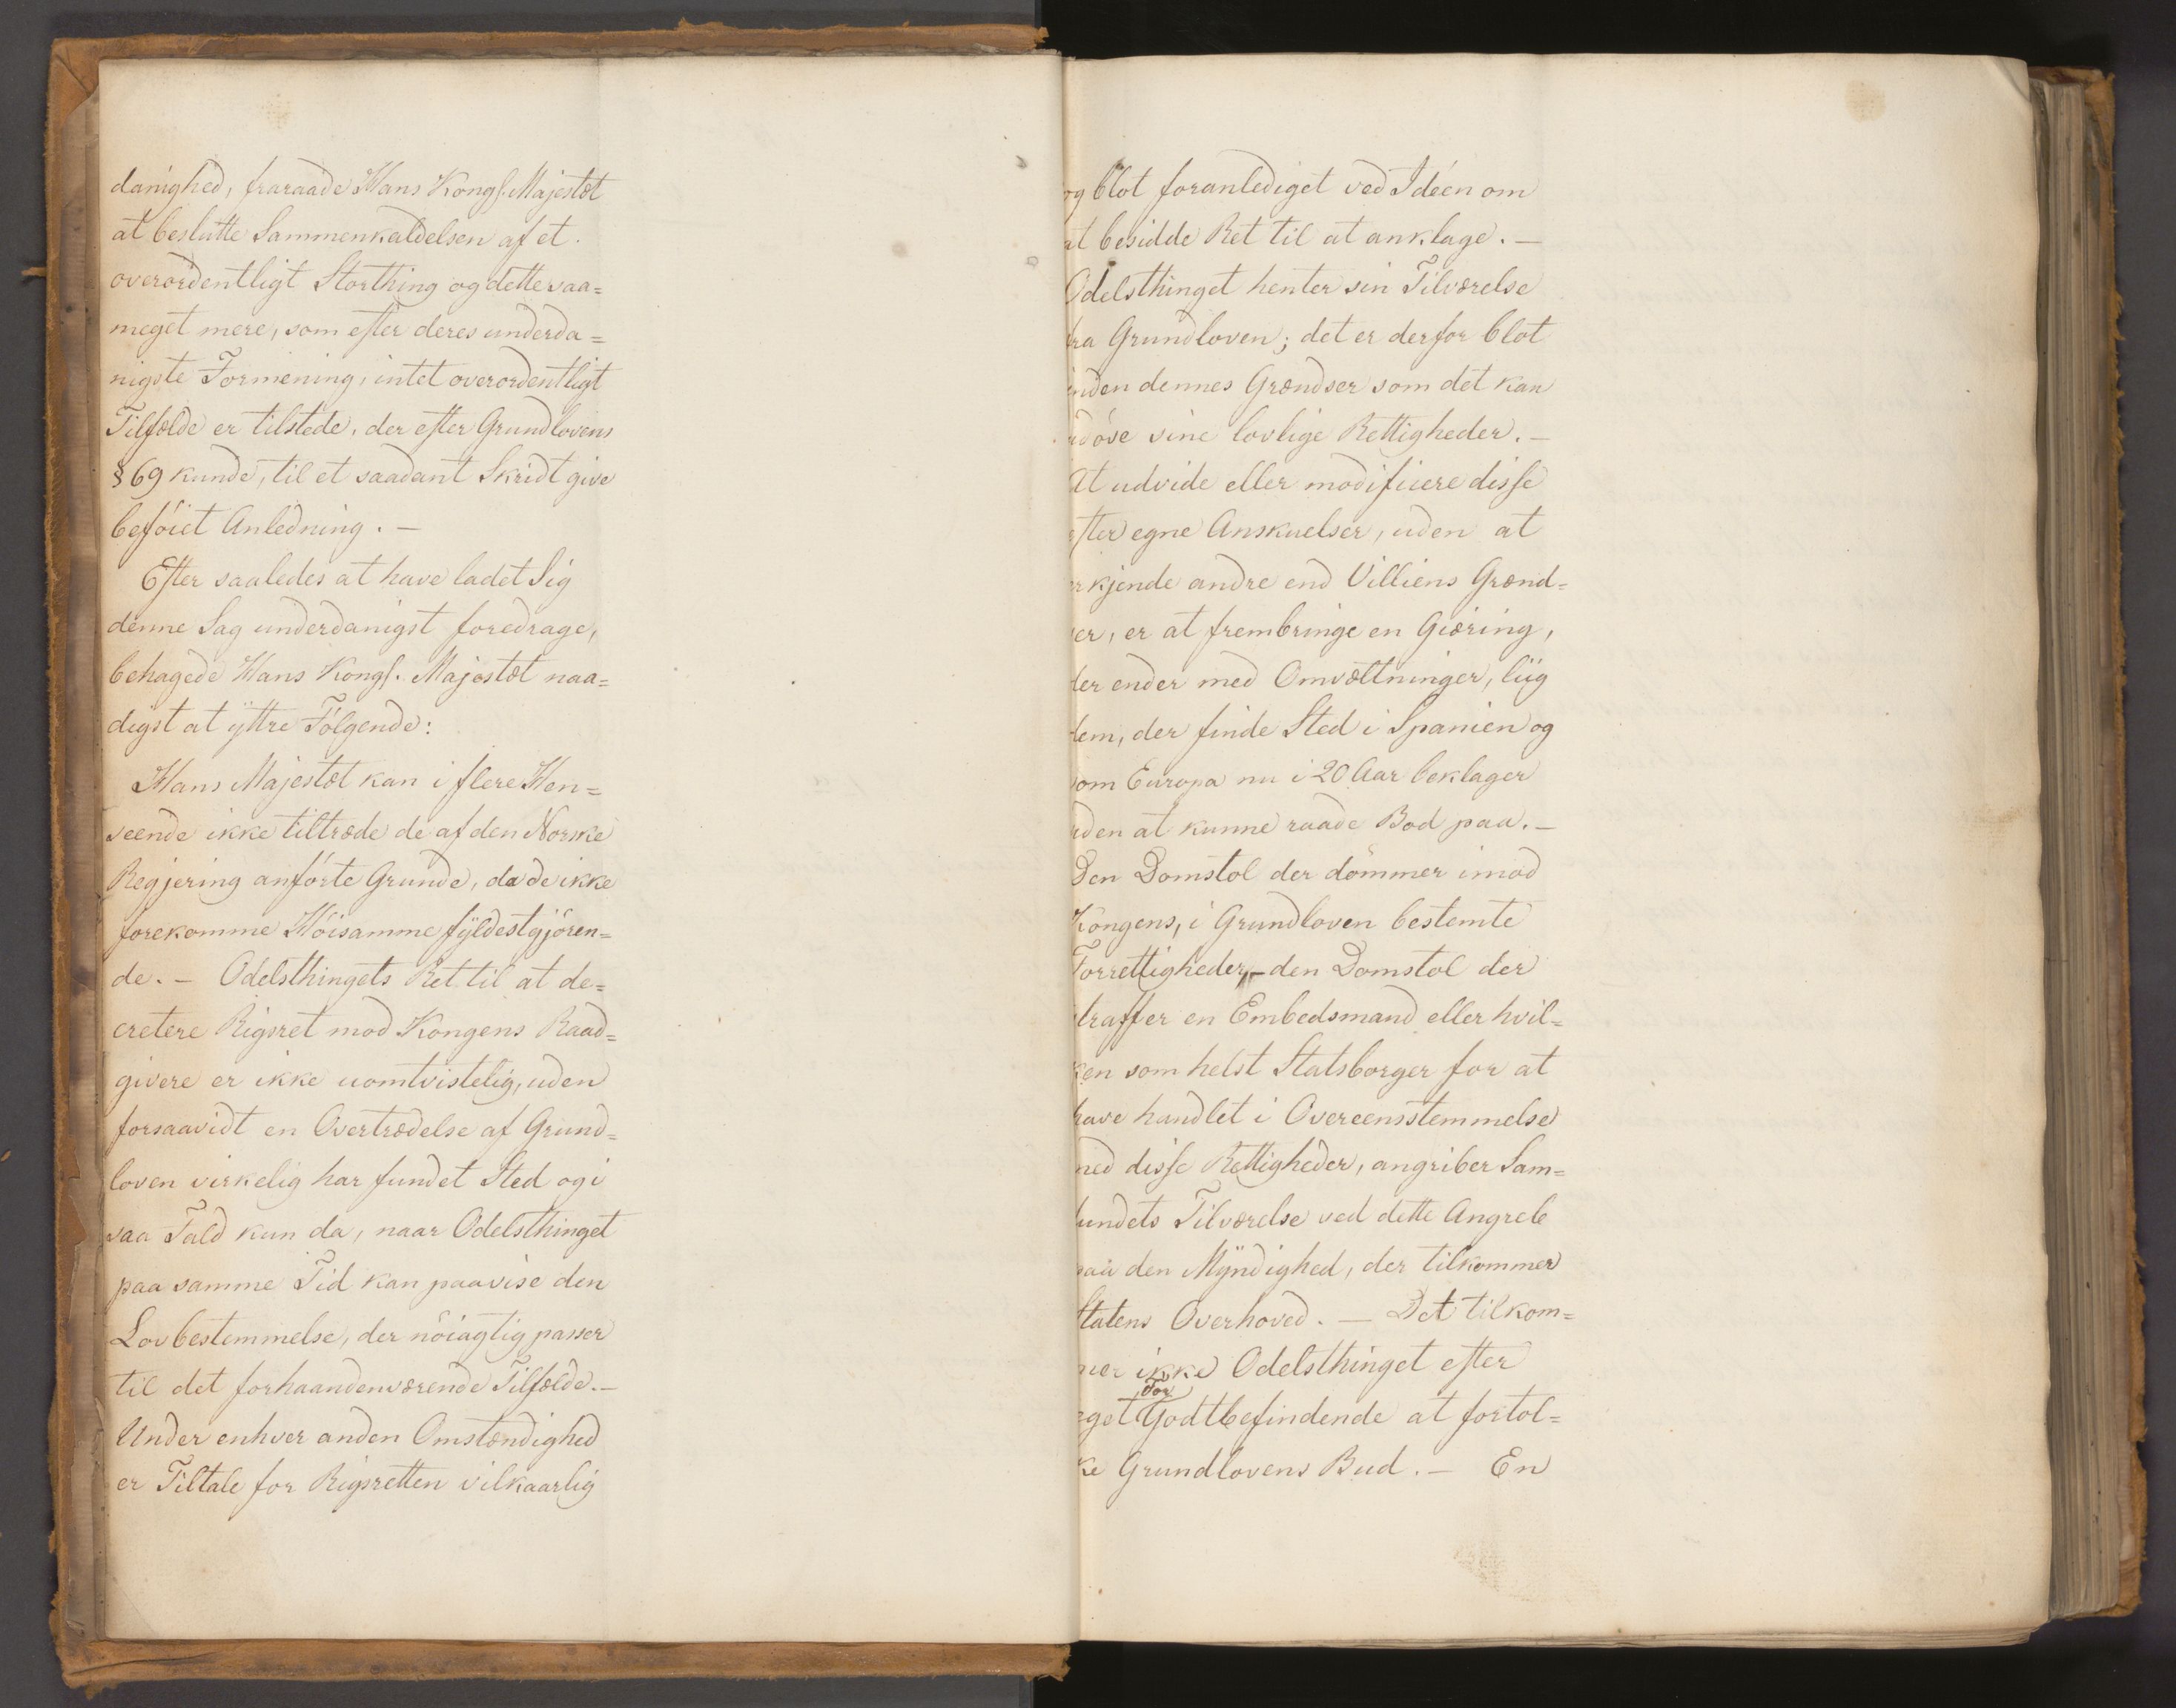 danighed, fraraade Hans Kongl. Majestæt
at beslutte Sammenkaldelsen af et
overordentligt Storthing og dette saa=
meget mere, som efter deres underda=
nigste Formening, intet overordentligt
Tilfælde er tilstede, der efter Grundlovens
§ 69 kunde, til et saadant Skridt give
beføiet Anledning. —
Efter saaledes at have ladet Sig
denne Sag underdanigst foredrage,
behagede Hans Kongl. Majestæt naa=
digst at ÿttre Følgende:
Hans Majestæt kan i flere Hen=
seende ikke tiltræde de af den Norske
Regjering anførte Grunde, da de ikke
forekomme Høisamme fÿldestgjøren=
de. — Odelsthingets Ret til at de=
cretere Rigsret mod Kongens Raad=
givere er ikke uomtvistelig, uden
forsaavidt en Overtrædelse af Grund=
loven virkelig har fundet Sted og i
saa Fald kun da, naar Odelsthinget
paa samme Tid kan paavise den
Lovbestemmelse, der nøiagtig passer
til det forhaandenværende Tilfælde. —
Under enhver anden Omstændighed
er Tiltale for Rigsretten vilkaarlig
og blot foranlediget ved Idéen om
at besidde Ret til at anklage. —
Odelsthinget henter sin Tilværelse
fra Grundloven; det er derfor blot
inden dennes Grændser som det kan
udøve sine lovlige Rettigheder. —
At udvide eller modificere disse
efter egne Anskuelser, uden at
erkjende andre end Villiens Grænd=
ser, er at frembringe en Giæring,
der ender med Omvæltninger, liig
dem, der finde Sted i Spanien og
som Europa nu i 20 Aar beklager
uden at kunne raade Bod paa. —
Den Domstol der dømmer imod
Kongens, i Grundloven bestemte
Forrettigheder, — den Domstol der
straffer en Embedsmand eller hvil=
ken som helst Statsborger for at
have handlet i Overeensstemmelse
med disse Rettigheder, angriber Sam=
fundets Tilværelse ved dette Angreb
paa den Mÿndighed, der tilkommer
Statens Overhoved. — Det tilkom=
mer ikke Odelsthinget efter
eget For Godtbefindende at fortol=
ke Grundlovens Bud. — En